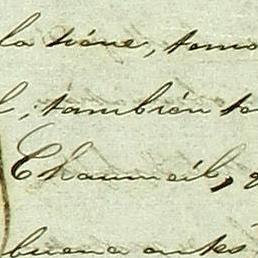 la tiene, tomo
l, también te
Chaumeil, q
buena antes